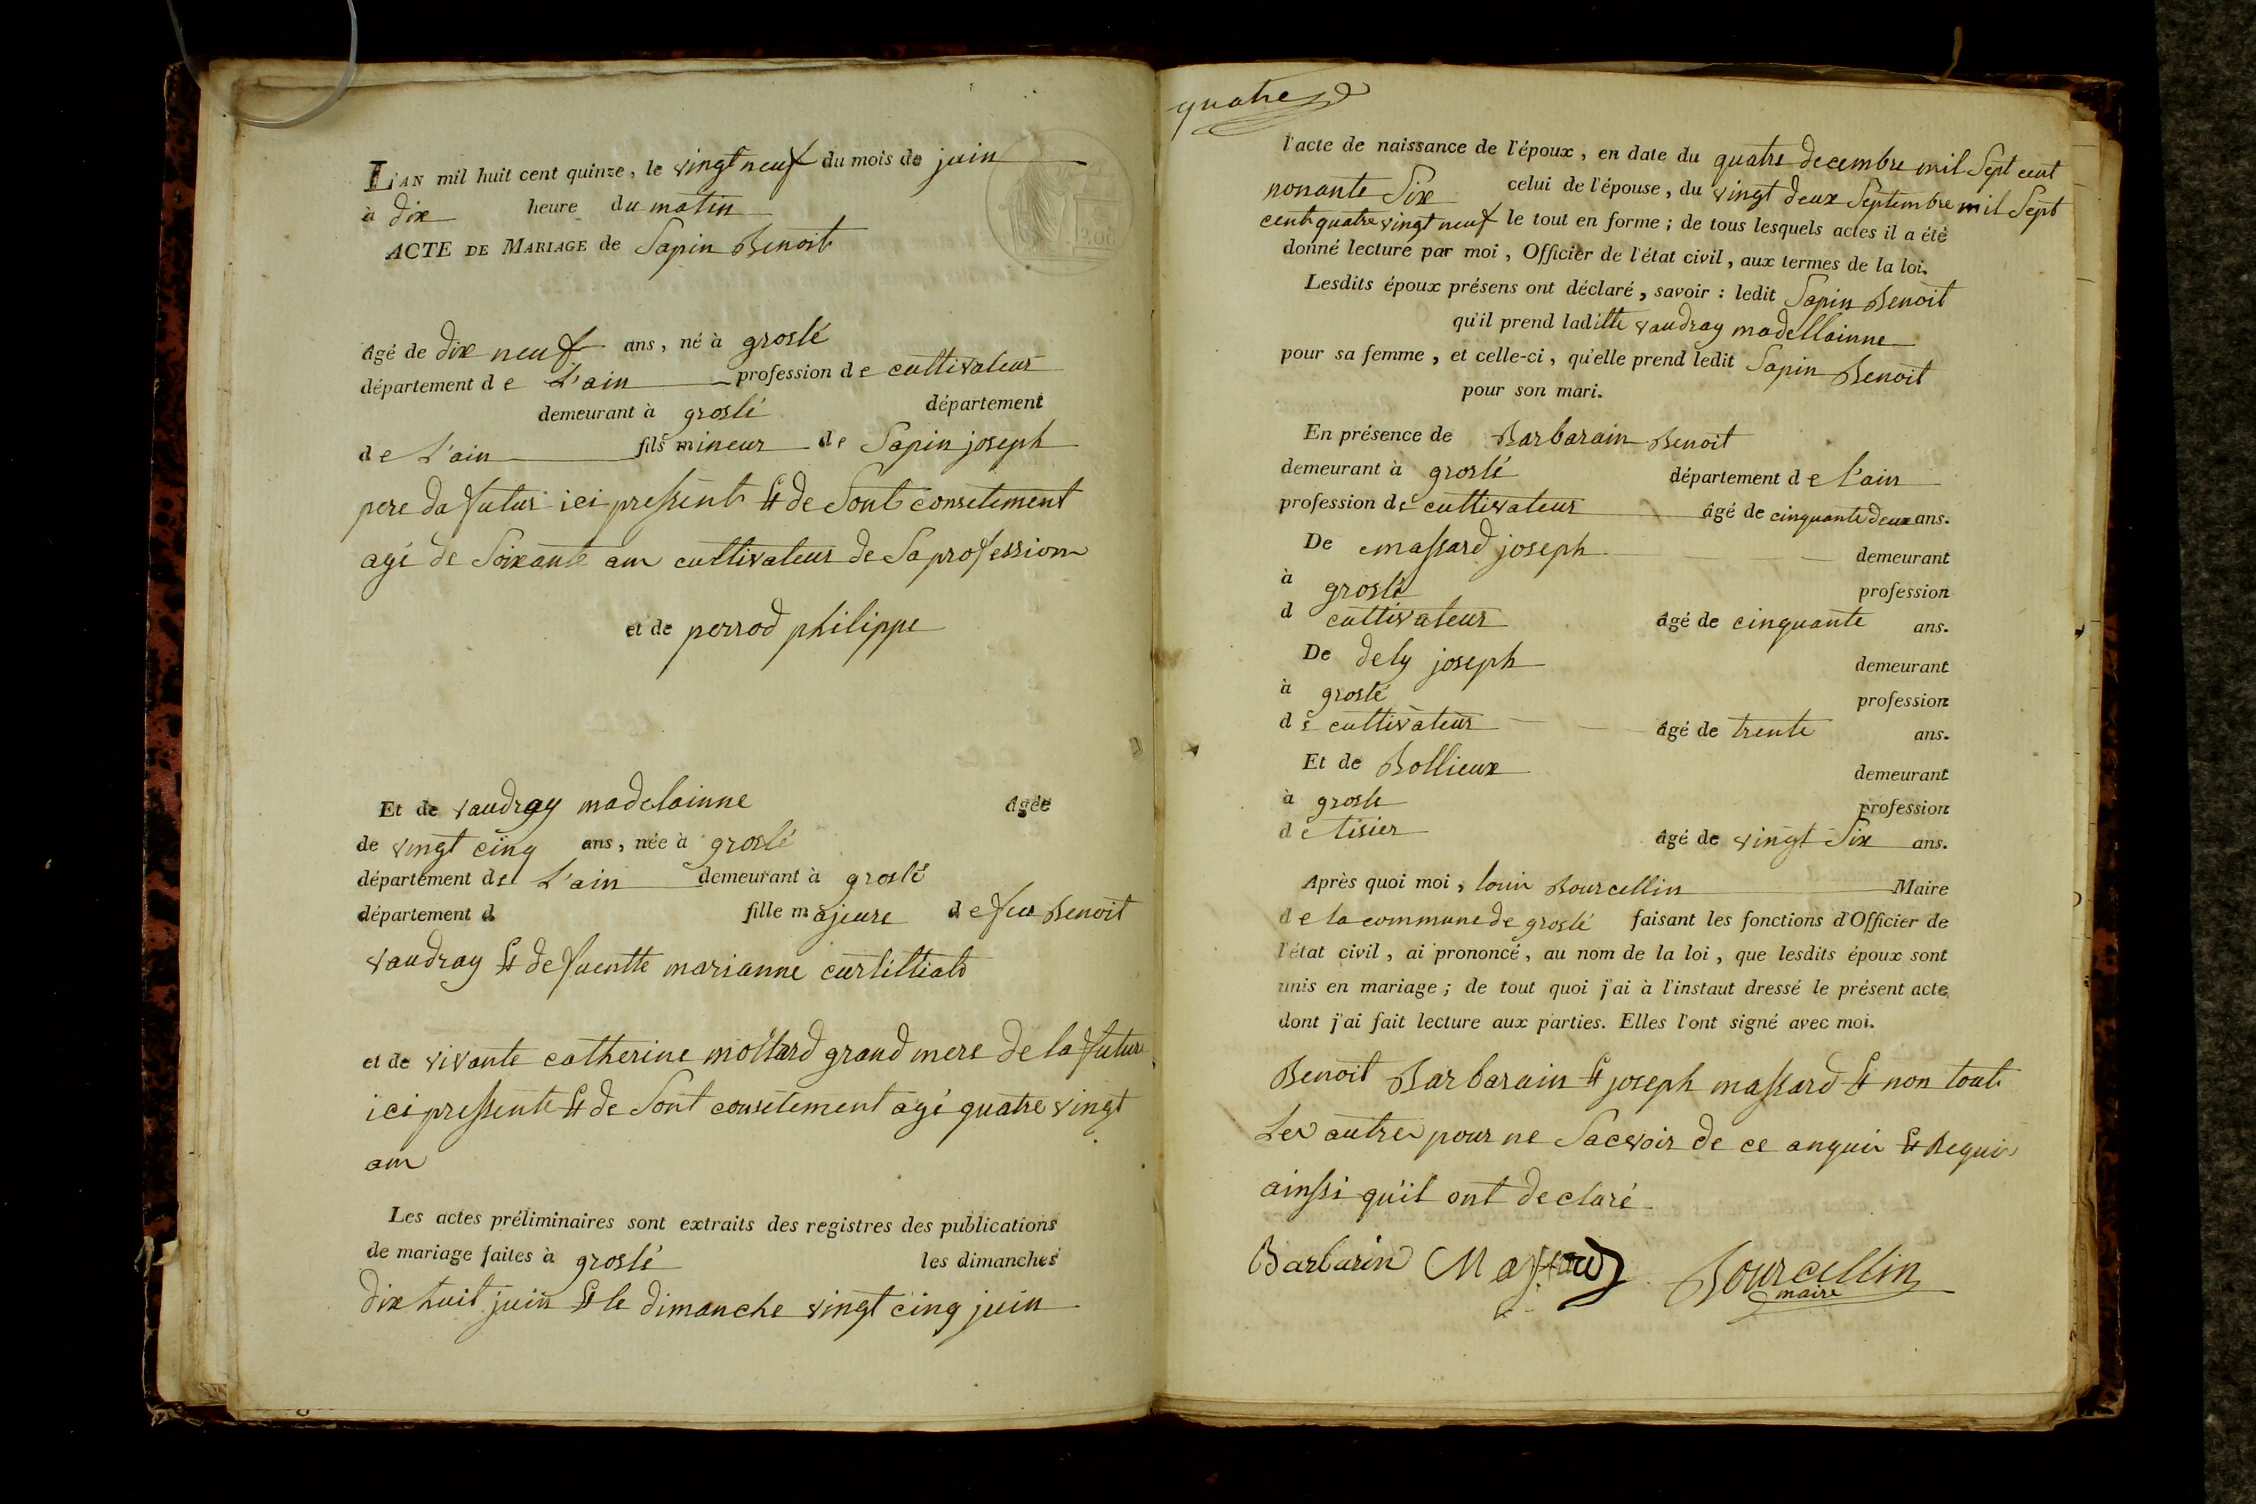 L'AN mil huit cent quinze, le vingt neuf du mois de juin
à dix heure du matin
ACTE DE MARIAGE de Sapin Benoit
âgé de dix neuf ans, né à groslé
département de L'ain profession de cultivateur
demeurant à groslé département
de L'ain fils mineur de Sapin joseph
pere du futur ici pressent et de Sont consetement
agé de Soixante ans cultivateur de Sa profession
et de perrod philippe
Et de vaudray madelainne âgée
de vingt cinq ans, née à groslé
département de L'ain demeurant à groslé
département d fille majeure de feu Benoit
vaudray et defuentte marianne
et de vivante catherine mollard grand mere de la future
ici pressente et de Sont consetement agé quatre vingt
ans
Les actes préliminaires sont extraits des registres des publications
de mariage faites à groslé les dimanches
dix huit juin et le dimanche vingt cinq juin
quatre
l'acte de naissance de l'époux, en date du quatre decembre mil Sept cent
nonante Six celui de l'épouse, du vingt deux Septembre mil Sept
cent quatre vingt neuf le tout en forme; de tous lesquels actes il a été
donné lecture par moi, Officier de l'état civil, aux termes de la loi.
Lesdits époux présens ont déclaré, savoir: ledit Sapin Benoit
qu'il prend laditte vaudray madellainne
pour sa femme, et celle-ci, qu'elle prend ledit Sapin Benoit
pour son mari.
En présence de Barbarain Benoit
demeurant à groslé département de l'ain
profession de cultivateur âgé de cinquante deux ans.
De massard joseph demeurant
à groslé profession
d cultivateur âgé de cinquante ans.
De dely joseph demeurant
à groslé profession
de cultivateur âgé de trente ans.
Et de Bollieux demeurant
à grosle profession
de tisier âgé de vingt Six ans.
Après quoi moi, louis Bourcellin Maire
de la commune de groslé faisant les fonctions d'Officier de
l'état civil, ai prononcé, au nom de la loi, que lesdits époux sont
unis en mariage; de tout quoi j'ai à l'instaut dressé le présent acte
dont j'ai fait lecture aux parties. Elles l'ont signé avec moi.
Benoit Barbarain et joseph massard et non tout
Les autres pour ne Sacvoir de ce anquis et Requis
ainssi qu'il ont declaré
Barbarin Massard Bourcellin
maire